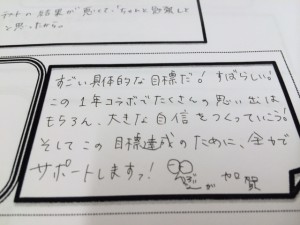 テストの結果が悪くて、ちゃんと勉強して
と思ったから。
すごい具体的な目標だ！すばらしい！
この1年コラボでたくさんの思い出は
もちろん、大きな自信をつくっていこう！
そしてこの目標達成のために、全力で
サポートしますっ！